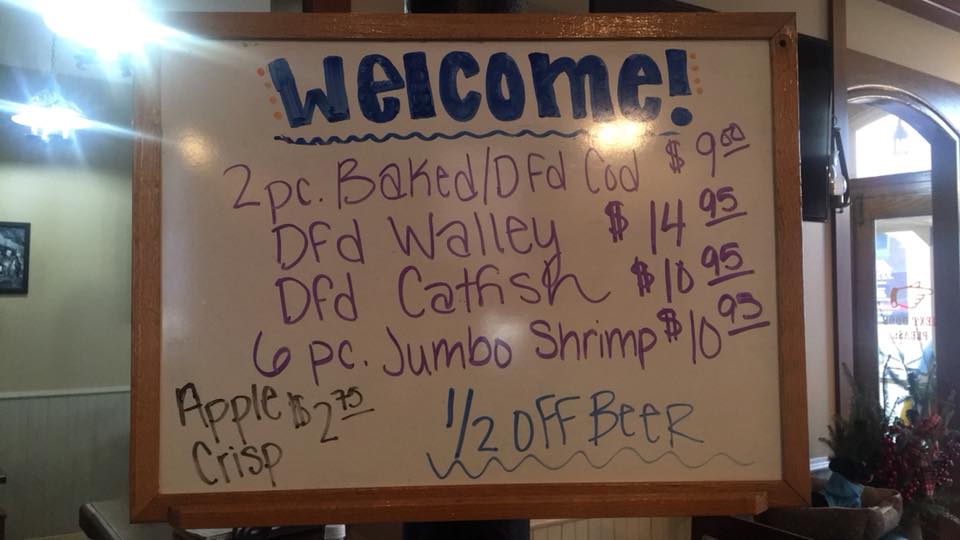 Welcome!
2 pc. Baked/Dfd Cod $ 9.00
Dfd Walley $ 14.95
Dfd Catfish $10.95
6 pc. Jumbo Shrimp $10.95
Apple $2.75
Crisp
1/2 OFF BEER
NEXT DOOR
PLEASE